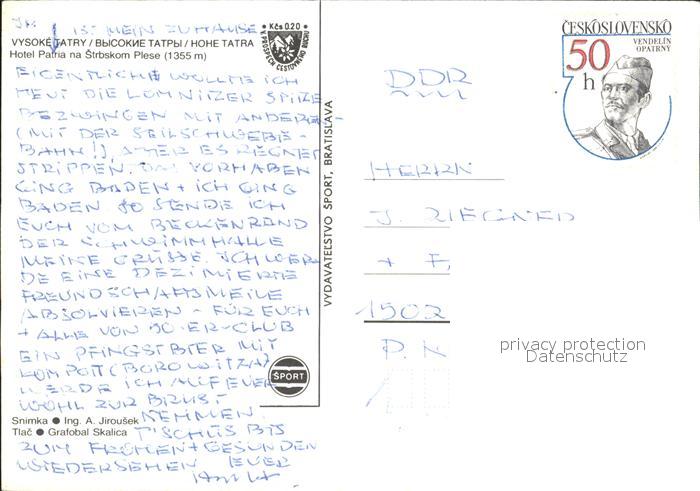 IST MEIN ZUHAUSE
Kčs 0.20
VYSOKÉ TATRY / ВЫСОКИЕ ТАТРЫ / HOHE TATRA
Hotel Patria na Štrbskom Plese (1355 m)
EIGENTLICH WOLLTE ICH
HEUT DIE LOMNITZER SPITZE
BEZWINGEN MIT ANDEREN
(MIT DER SEILSCHWEBE-
BAHN!), ABER ES REGNET
STRIPPEN. DAS VORHABEN
GING BADEN + ICH GING
BADEN SO SENDE ICH
EUCH VOM BECKENRAND
DER SCHWIMMHALLE
MEINE GRÜSSE. ICH WER-
DE EINE DEZIMIERTE
FREUNDSCHAFTSMEILE
ABSOLVIEREN - FÜR EUCH
+ ALLE VON 30-ER-CLUB
EIN PFINGSTBIER MIT
KOMPOTT (BOROWITZA)
WERDE ICH AUF EUER
WOHL ZUR BRUST
NEHMEN.
Snimka ● Ing. A. Jiroušek
Tlač ● Grafobal Skalica
TSCHÜS BIS
ZUM FROHEN + GESUNDEN
WIEDERSEHEN EUER
ŠPORT
VYDAVATEĽSTVO ŠPORT, BRATISLAVA
ČESKOSLOVENSKO
50
h
VENDELÍN
OPATRNÝ
DDR
HERRN
J. ZIEGNER
+ F.
1902
P. N
privacy protection
Datenschutz